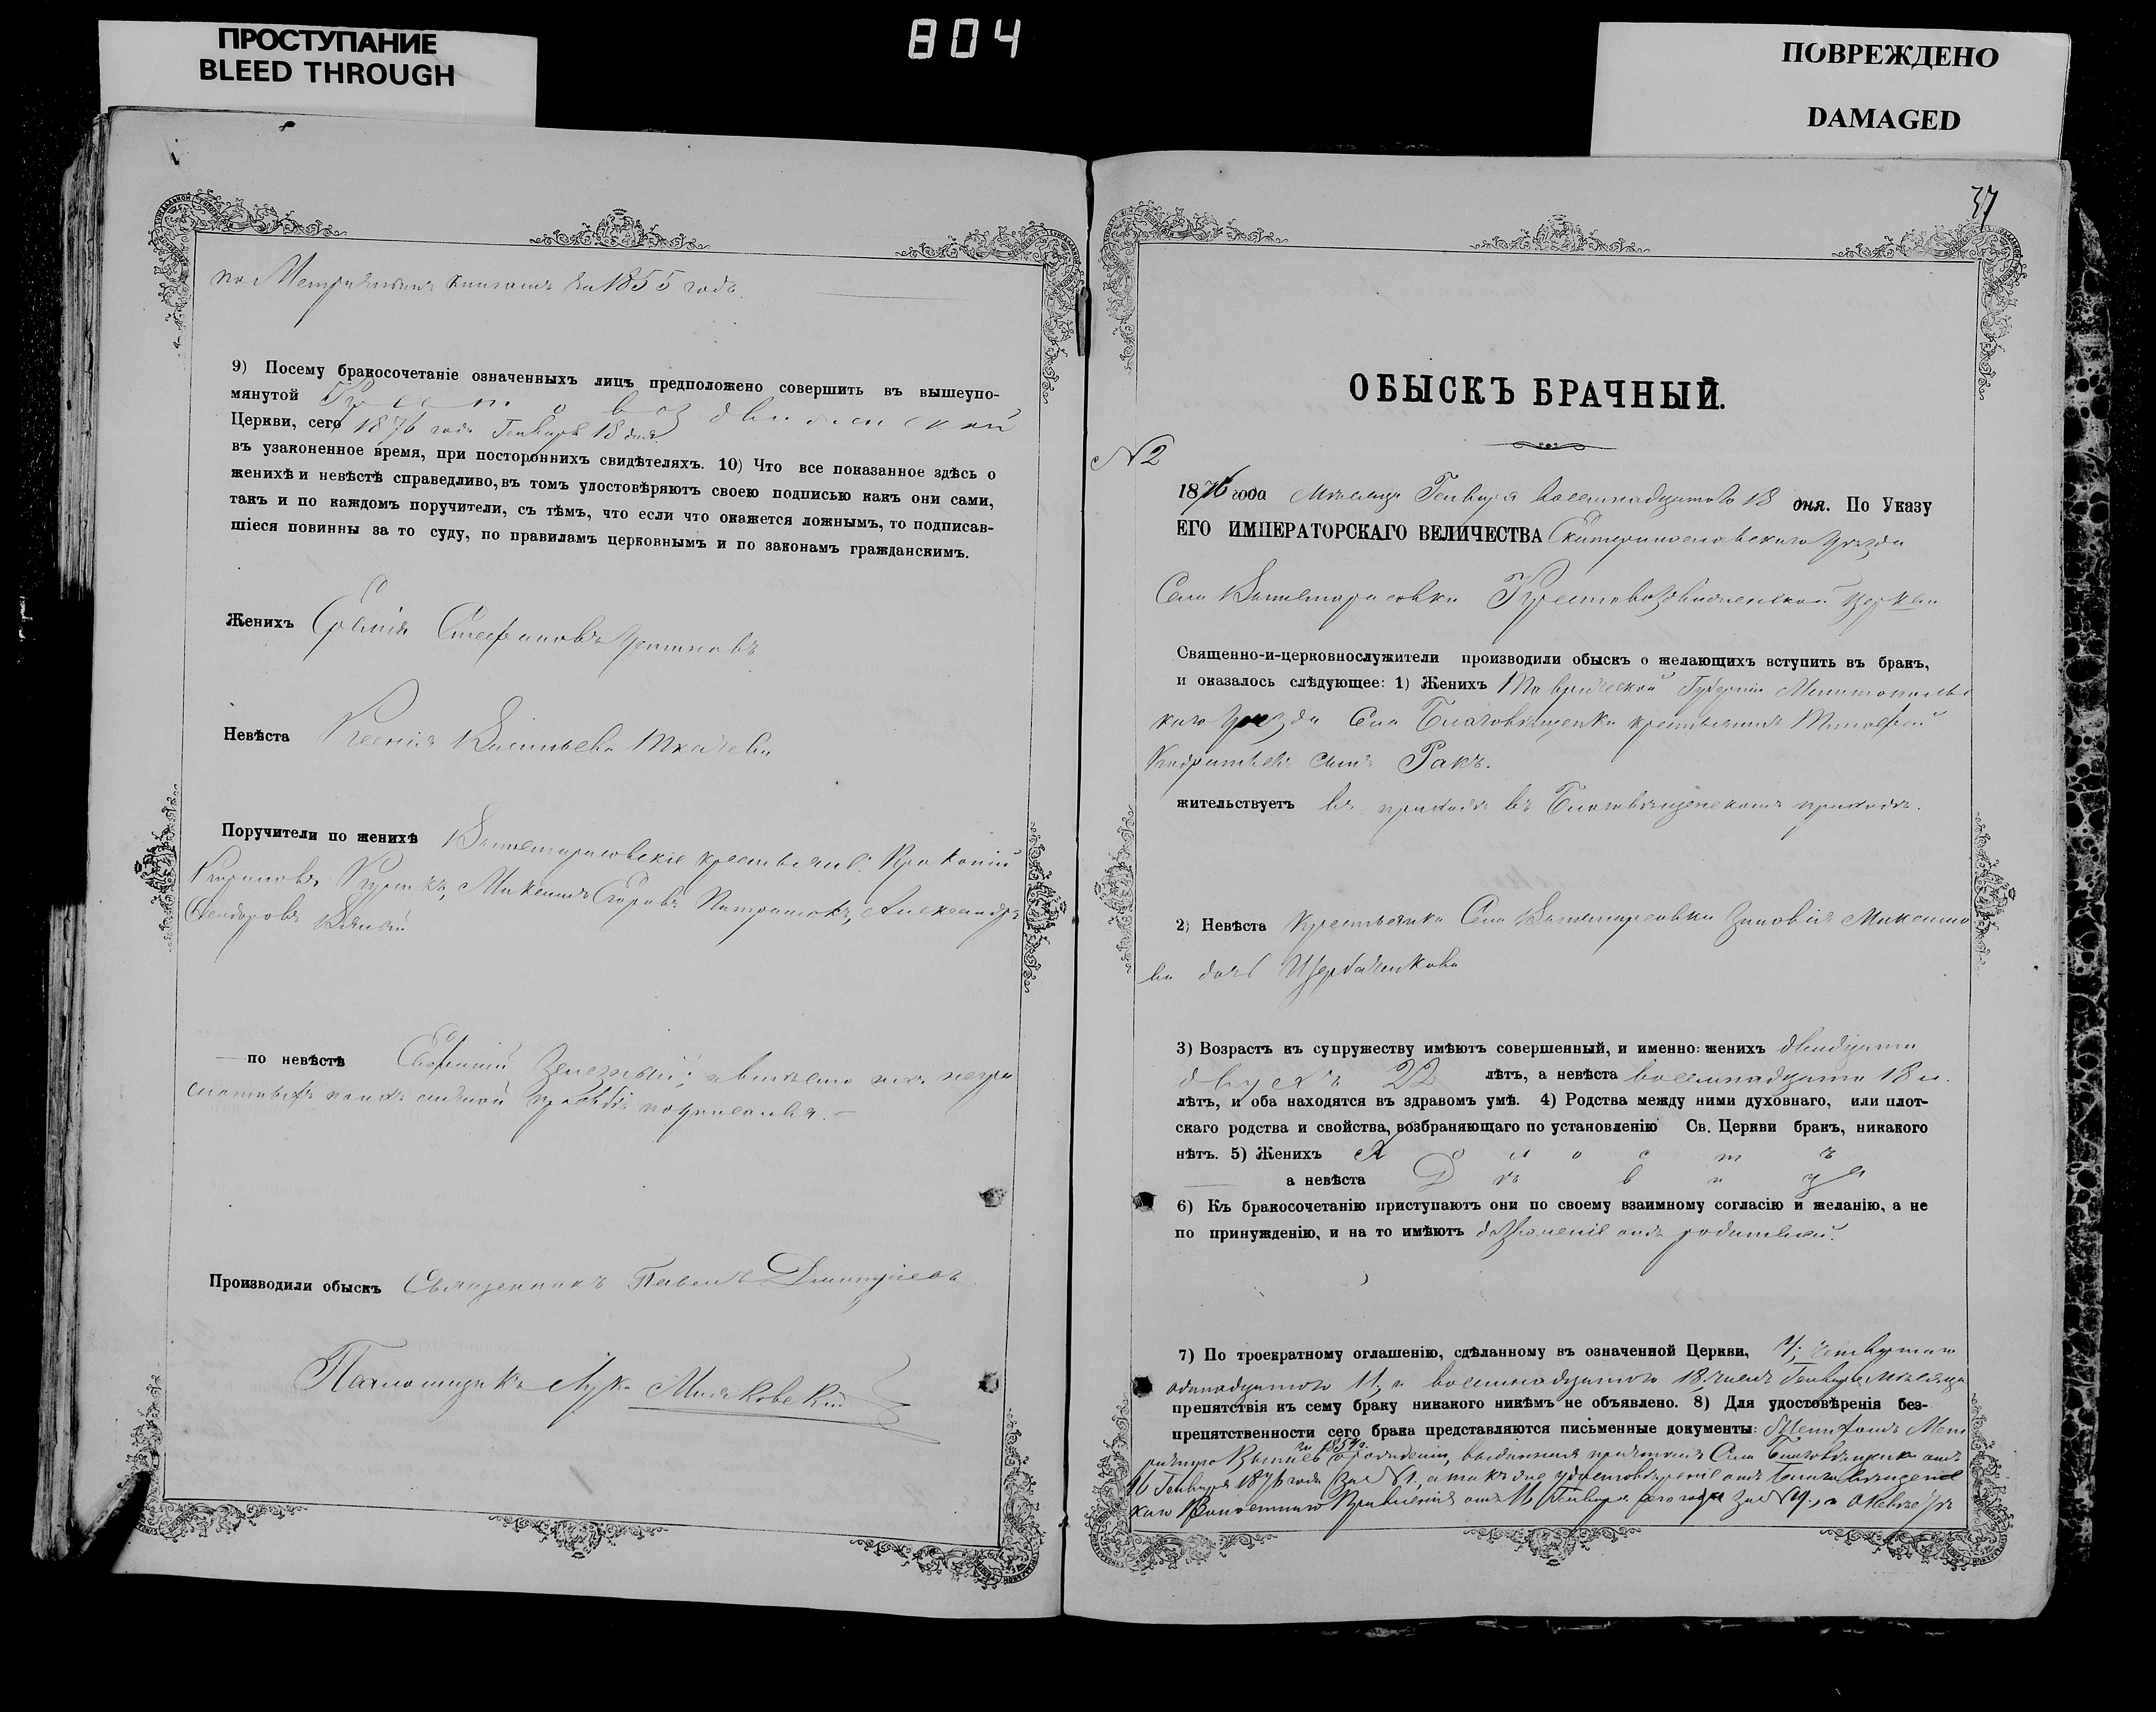 ПРОСТУПАНИЕ
BLEED THROUGH
804
ПОВРЕЖДЕНО
DAMAGED
по Метрическимъ книгамъ за 1855 годъ.
9) Посему бракосочетаніе означенныхъ лицъ предположено совершить въ вышеупо-
мянутой Крестовоздвиженской
Церкви, сего 1876 года Генваря 18 дня
въ узаконенное время, при постороннихъ свидѣтеляхъ. 10) Что все показанное здѣсь о
женихѣ и невѣстѣ справедливо, въ томъ удостовѣряютъ своею подписью какъ они сами,
такъ и по каждомъ поручители, съ тѣмъ, что если что окажется ложнымъ, то подписав-
шіеся повинны за то суду, по правиламъ церковнымъ и по законамъ гражданскимъ.
Женихъ Стефановъ
Невѣста Ксенія Васильева Ткачева
Поручители по женихѣ крестьяне: Прокопій
Максимъ Егоровъ Александръ
Феодоровъ
по невѣстѣ Евфимій а вмѣсто ихъ негра
мотныхъ
Производили обыскъ Священникъ Павелъ Димитріевъ
Псаломщикъ Лука
37
ОБЫСКЪ БРАЧНЫЙ.
№ 2
1876 года Мѣсяца Генваря восемнадцатого 18 дня. По Указу
ЕГО ИМПЕРАТОРСКАГО ВЕЛИЧЕСТВА Екатеринославскаго уѣзда
Села Крестовоздвиженской церкви
Священно-и-церковнослужители производили обыскъ о желающихъ вступить въ бракъ,
и оказалось слѣдующее: 1) Женихъ Таврической Губерніи Мелитопольс
каго Уѣзда Села Благовѣщенки крестьянинъ Тимофей
Кодратьевъ сынъ Ракъ.
жительствуетъ въ приходѣ въ Благовѣщенскомъ приходѣ.
2) Невѣста Крестьянка Села Зиновія Максимо
ва дочь Щербаченкова
3) Возрастъ къ супружеству имѣютъ совершенный, и именно: женихъ двадцати
двухъ 22 лѣтъ, а невѣста восемнадцати 18 и.
лѣтъ, и оба находятся въ здравомъ умѣ. 4) Родства между ними духовнаго, или плот-
скаго родства и свойства, возбраняющаго по установленію Св. Церкви бракъ, никакого
нѣтъ. 5) Женихъ Холостъ
а невѣста Дѣвица
6) Къ бракосочетанію приступаютъ они по своему взаимному согласію и желанію, а не
по принужденію, и на то имѣютъ дозволеніе отъ родителей.
7) По троекратному оглашенію, сдѣланному въ означенной Церкви, 4; четвертаго
одинадцатого 11, и восемнадцатого 18; числъ Генваря Мѣсяца
препятствія къ сему браку никакого никѣмъ не объявлено. 8) Для удостовѣренія без-
препятственности сего брака представляются письменные документы: о женихѣ Мет
за 1854 г.
рическая о рожденіи, выданная причтомъ Села Благовѣщенки отъ
16 Генваря 1876 года за №1, а также удостовѣреніе отъ Благовѣщенс
каго Волостнаго Правленія отъ 16 Генваря сего года за №4., а о невѣстѣ